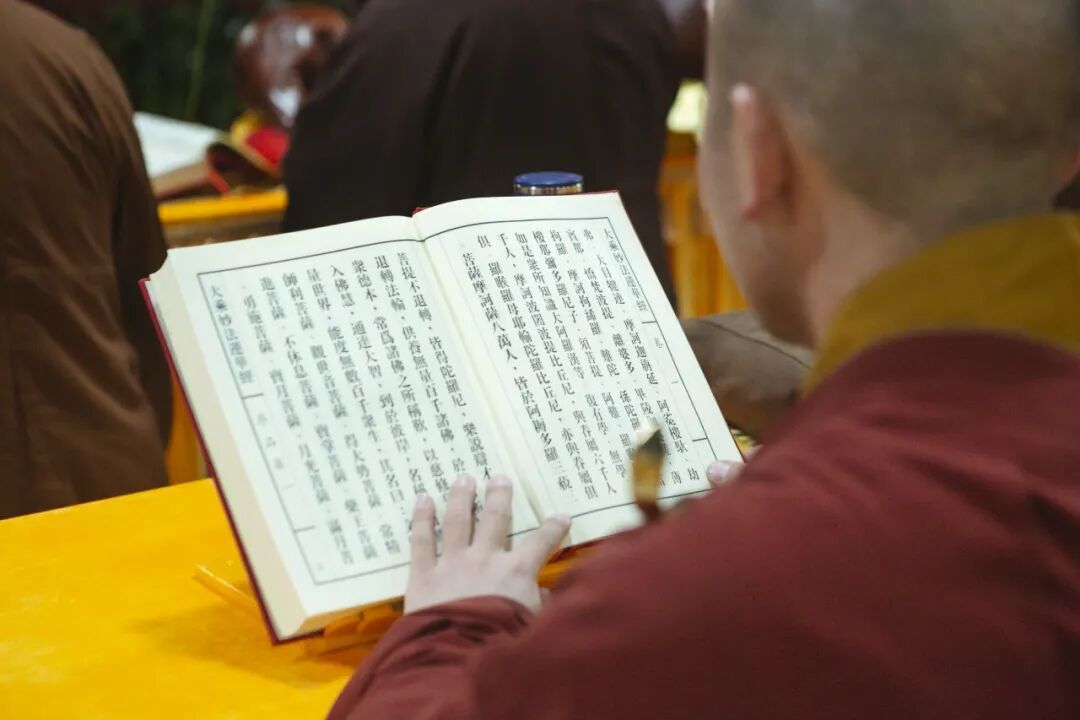 大乘妙法蓮華經 卷一
弗、大目犍連、摩訶迦旃延、阿㝹樓馱、劫
賓那、憍梵波提、離婆多、畢陵 薄
拘羅、摩訶拘絺羅、難陀、孫陀羅
樓那彌多羅尼子、須菩提、阿難、羅
如是眾所知識大阿羅漢等。復有學、無學
千人。摩訶波闍波提比丘尼，與眷屬六千人
俱。羅睺羅母耶輸陀羅比丘尼，亦與眷屬俱
菩薩摩訶薩八萬人，皆於阿耨多羅三藐三
菩提不退轉。皆得陀羅尼，樂說辯
退轉法輪。供養無量百千諸佛，於
眾德本，常爲諸佛之所稱歎。以慈修
入佛慧，通達大智，到於彼岸，名
量世界，能度無數百千眾生。其名曰：
師利菩薩、觀世音菩薩、得大勢菩薩、常精
進菩薩、不休息菩薩、寶掌菩薩、藥王菩薩
、勇施菩薩、寶月菩薩、月光菩薩、滿月菩
大乘妙法蓮華經 序品第一